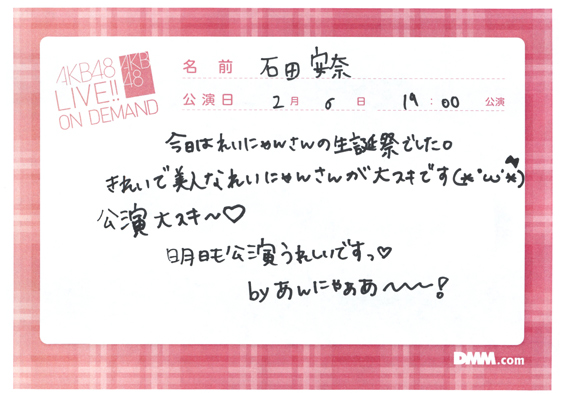 AKB48
LIVE!!
ON DEMAND
AKB
48
名前 石田 安奈
公演日 2月6日 19:00 公演
今日はれいにゃんさんの生誕祭でした。
きれいで美人なれいにゃんさんが大スキです(*´ω`*)
公演大スキ〜♡
明日も公演うれいですっ♡
byあんにゃぁあ〜〜〜!
DMM.com